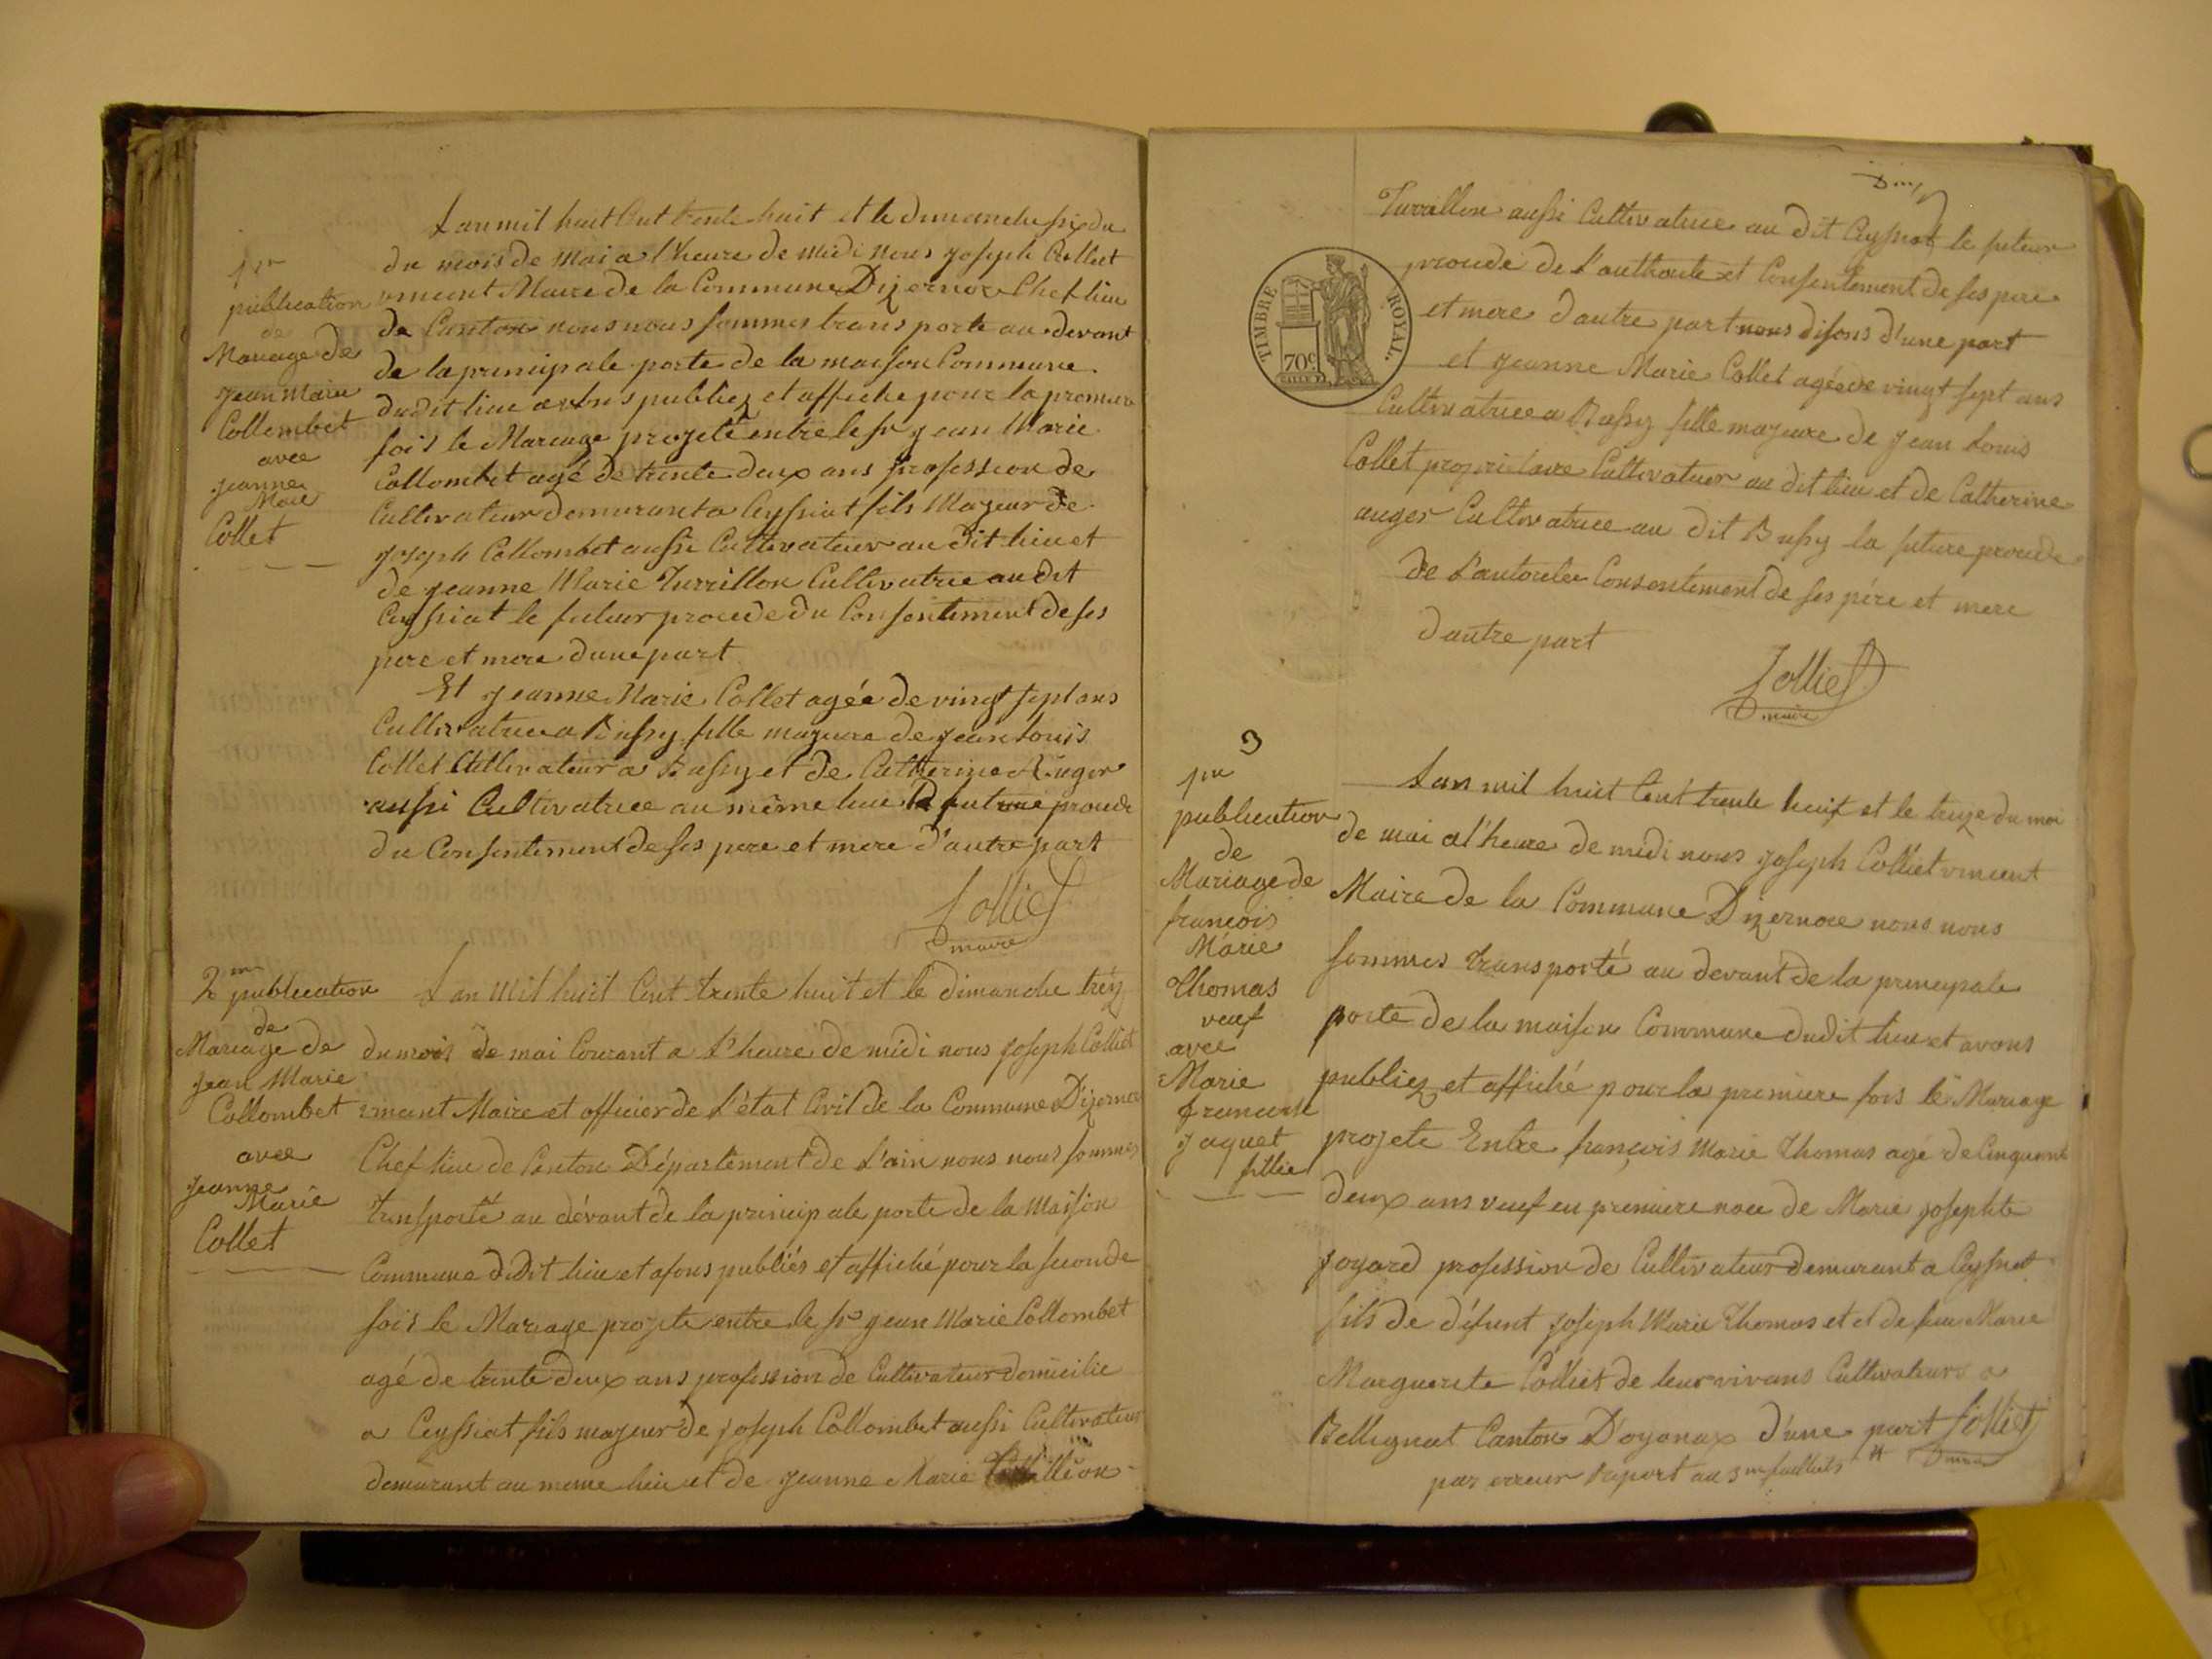 1re
publication
de
Mariage de
Jean Marie
Collombet
avec
Jeanne
Marie
Collet
L'an mil huit Cent trente huit et le dimanche six du
du mois de Mai a l'heure de midi nous Joseph Colliet
vincent Maire de la Commune Dizernore Chef lieu
de Canton nous nous sommes transporte au devant
de la principale porte de la maison Commune
dudit lieu avons publiez et affiche pour la premiere
fois le Mariage projeté entre le sr Jean Marie
Collombet agé de trente deux ans profession de
Cultivateur demurant a Ceyssiat fils Majeur de
Joseph Collombet aussi Cultivateur au dit lieu et
de Jeanne Marie Turrillon Cultivatrice au dit
Ceyssiat le futeur procede du Consentement de ses
pere et mere dune part
Et Jeanne Marie Collet agée de vingt sept ans
Cultivatrice a Bussy fille majeure de Jean Louis
Collet Cultivateur a Bussy et de Catherine Auger
aussi Cultivatrice au même lieu la future procede
du Consentement de ses pere et mere d'autre part
Colliet
maire
2me publication
de
Mariage de
Jean Marie
Collombet
avec
Jeanne
Marie
Collet
L'an Mil huit Cent trente huit et le dimanche tréz
du mois de mai Courant a l'heure de midi nous Joseph Colliet
vincent Maire et officier de l'état Civil de la Commune Dizernore
Chef lieu de Canton Département de L'ain nous nous sommes
transporté au dévant de la principale porte de la Maison
Commune dudit lieu et avons publiés et affiché pour la seconde
fois le Mariage projete entre le sr Jean Marie Collombet
agé de trente deux ans profession de Cultivateur domicilie
a Ceyssiat fils majeur de Joseph Collombet aussi Cultivateur
demurant au meme lieu et de Jeanne Marie
TIMBRE ROYAL.
70c
Turrillon aussi Cultivatrice au dit Ceyssiat le futeur
procede de l'authorité et Consentement de ses pere
et mere d'autre part nous disons d'une part
et Jeanne Marie Collet agée de vingt sept ans
Cultivatrice a Bussy fille majeure de Jean Louis
Collet proprietaire Cultivateur au dit lieu et de Catherine
auger Cultivatrice au dit Bussy la future procede
de l'autorité Consentement de ses pére et mere
d'autre part
Colliet
maire
3
1re
publication
de
Mariage de
françois
Marie
Thomas
veuf
avec
Marie
Jaquet
fillie
L'an mil huit Cent trente huit et le treze du moi
de mai a l'heure de midi nous Joseph Colliet vincent
Maire de la Commune Dizernore nous nous
sommes transporté au devant de la principale
porte de la maison Commune dudit lieu et avons
publiez et affiché pour la premiere fois le Mariage
projete Entre françois Marie Thomas agé de Cinquante
deux ans veuf en premiere noce de Marie Josephte
Joyard profession de Cultivateur demurant a Ceyssiat
fils de défunt Joseph Marie Thomas et de feu Marie
Marguerite Colliet de leur vivans Cultivateurs a
Bellignat Canton D'oyonax d'une part Colliet
par erreur Raport au 3me feuillets maire